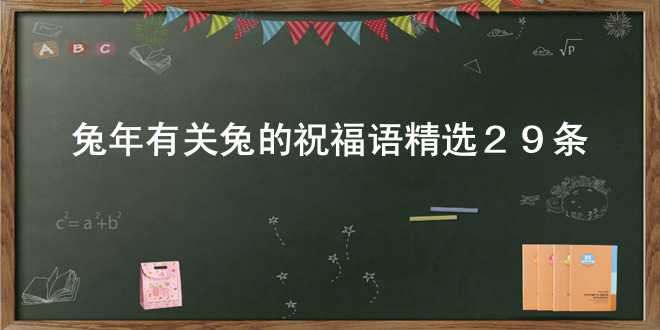 A B C
√p
兔年有关兔的祝福语精选２９条
c²=a²+b²